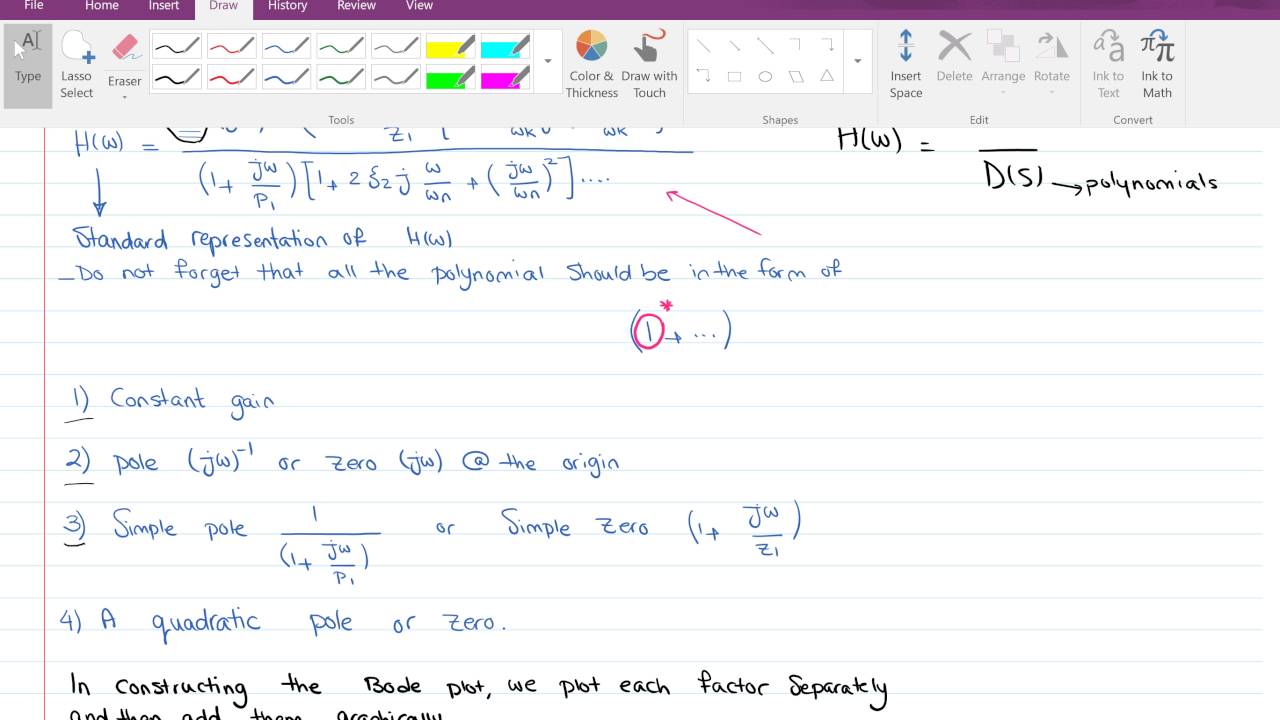 File Home Insert Draw History Review View
Type
Lasso Select
Eraser
Color & Thickness
Draw with Touch
Insert Space
Delete
Arrange
Rotate
Ink to Text
Ink to Math
Tools
Shapes
Edit
Convert
H(ω) =
(1+ jω/P1)[1+ 2δ2j ω/ωn + (jω/ωn)²]....
H(ω) =
D(S) → polynomials
Standard representation of H(ω)
- Do not forget that all the polynomial should be in the form of
(1 + ...)
*
1) Constant gain
2) pole (jω)⁻¹ or zero (jω) @ the origin
3) Simple pole 1/(1+ jω/P1) or Simple zero (1+ jω/Z1)
4) A quadratic pole or zero.
In constructing the Bode plot, we plot each factor separately
and then add them graphically